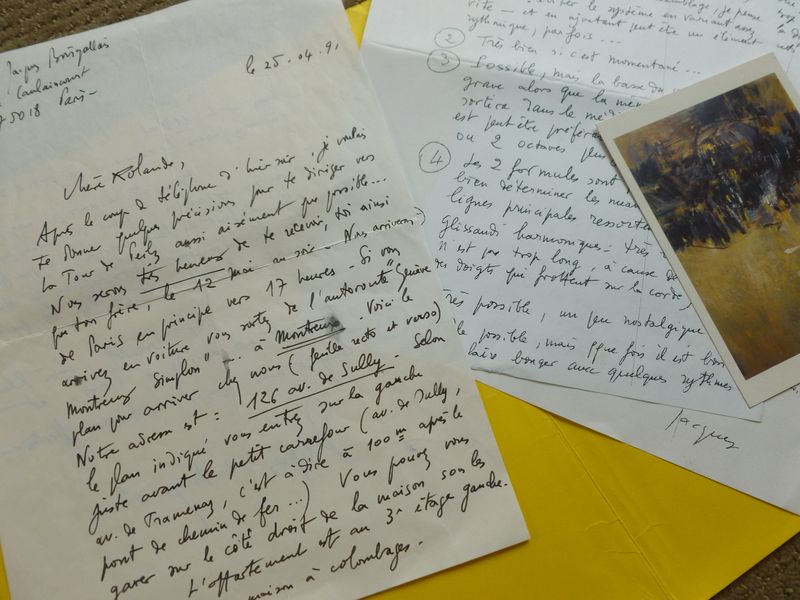 le 25.04.91
Caulaincourt
75018 Paris -
Chère Rolande,
Après le coup de téléphone d'hier soir, je voulais
te donner quelques précisions pour te diriger vers
La Tour de Peilz aussi aisément que possible...
Nous serons très heureux de te recevoir, toi ainsi
que ton frère, le 12 mai au soir - Nous arriverons
de Paris en principe vers 17 heures - Si vous
arrivez en voiture vous sortez de l'autoroute "Genève
Montreux Simplon" ... à Montreux - Voici le
plan pour arriver chez nous (feuille recto et verso)
Notre adresse est : 126 av. de Sully - Selon
le plan indiqué vous entrez sur la gauche
juste avant le petit carrefour (av. de Sully,
av. de Tramenaz, c'est à dire à 100 m après le
pont de chemin de fer...) Vous pouvez vous
garer sur le côté droit de la maison sous les
L'appartement est au 3e étage gauche.
maison à colombages.
le système en variant
vite - et en ajoutant peut être un élément
rythmique, parfois...
2 Très bien si c'est momentané...
3 Possible, mais la basse du
grave alors que la
sortira dans le
est peut être préférable
ou 2 octaves plus
4 Les 2 formules sont
bien déterminer les
lignes principales
Glissandi harmoniques = Très
n'est pas trop long, à cause de
des doigts qui frottent sur la corde)
Très possible, un peu nostalgique
possible, mais qque fois il est bon
faire bouger avec quelques rythmes
Jacques